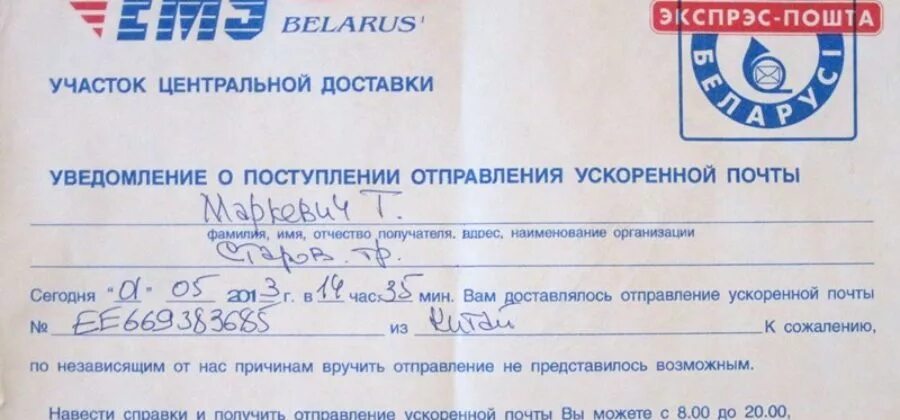 EMS
BELARUS'
ЭКСПРЭС-ПОШТА
БЕЛАРУСІ
УЧАСТОК ЦЕНТРАЛЬНОЙ ДОСТАВКИ
УВЕДОМЛЕНИЕ О ПОСТУПЛЕНИИ ОТПРАВЛЕНИЯ УСКОРЕННОЙ ПОЧТЫ
Маркевич Т.
фамилия, имя, отчество получателя, адрес, наименование организации
Старов. тр.
Сегодня "01" 05 2013 г. в 14 час. 35 мин. Вам доставлялось отправление ускоренной почты
№ EE669383685 из Китай К сожалению,
по независящим от нас причинам вручить отправление не представилось возможным.
Навести справки и получить отправление ускоренной почты Вы можете с 8.00 до 20.00,